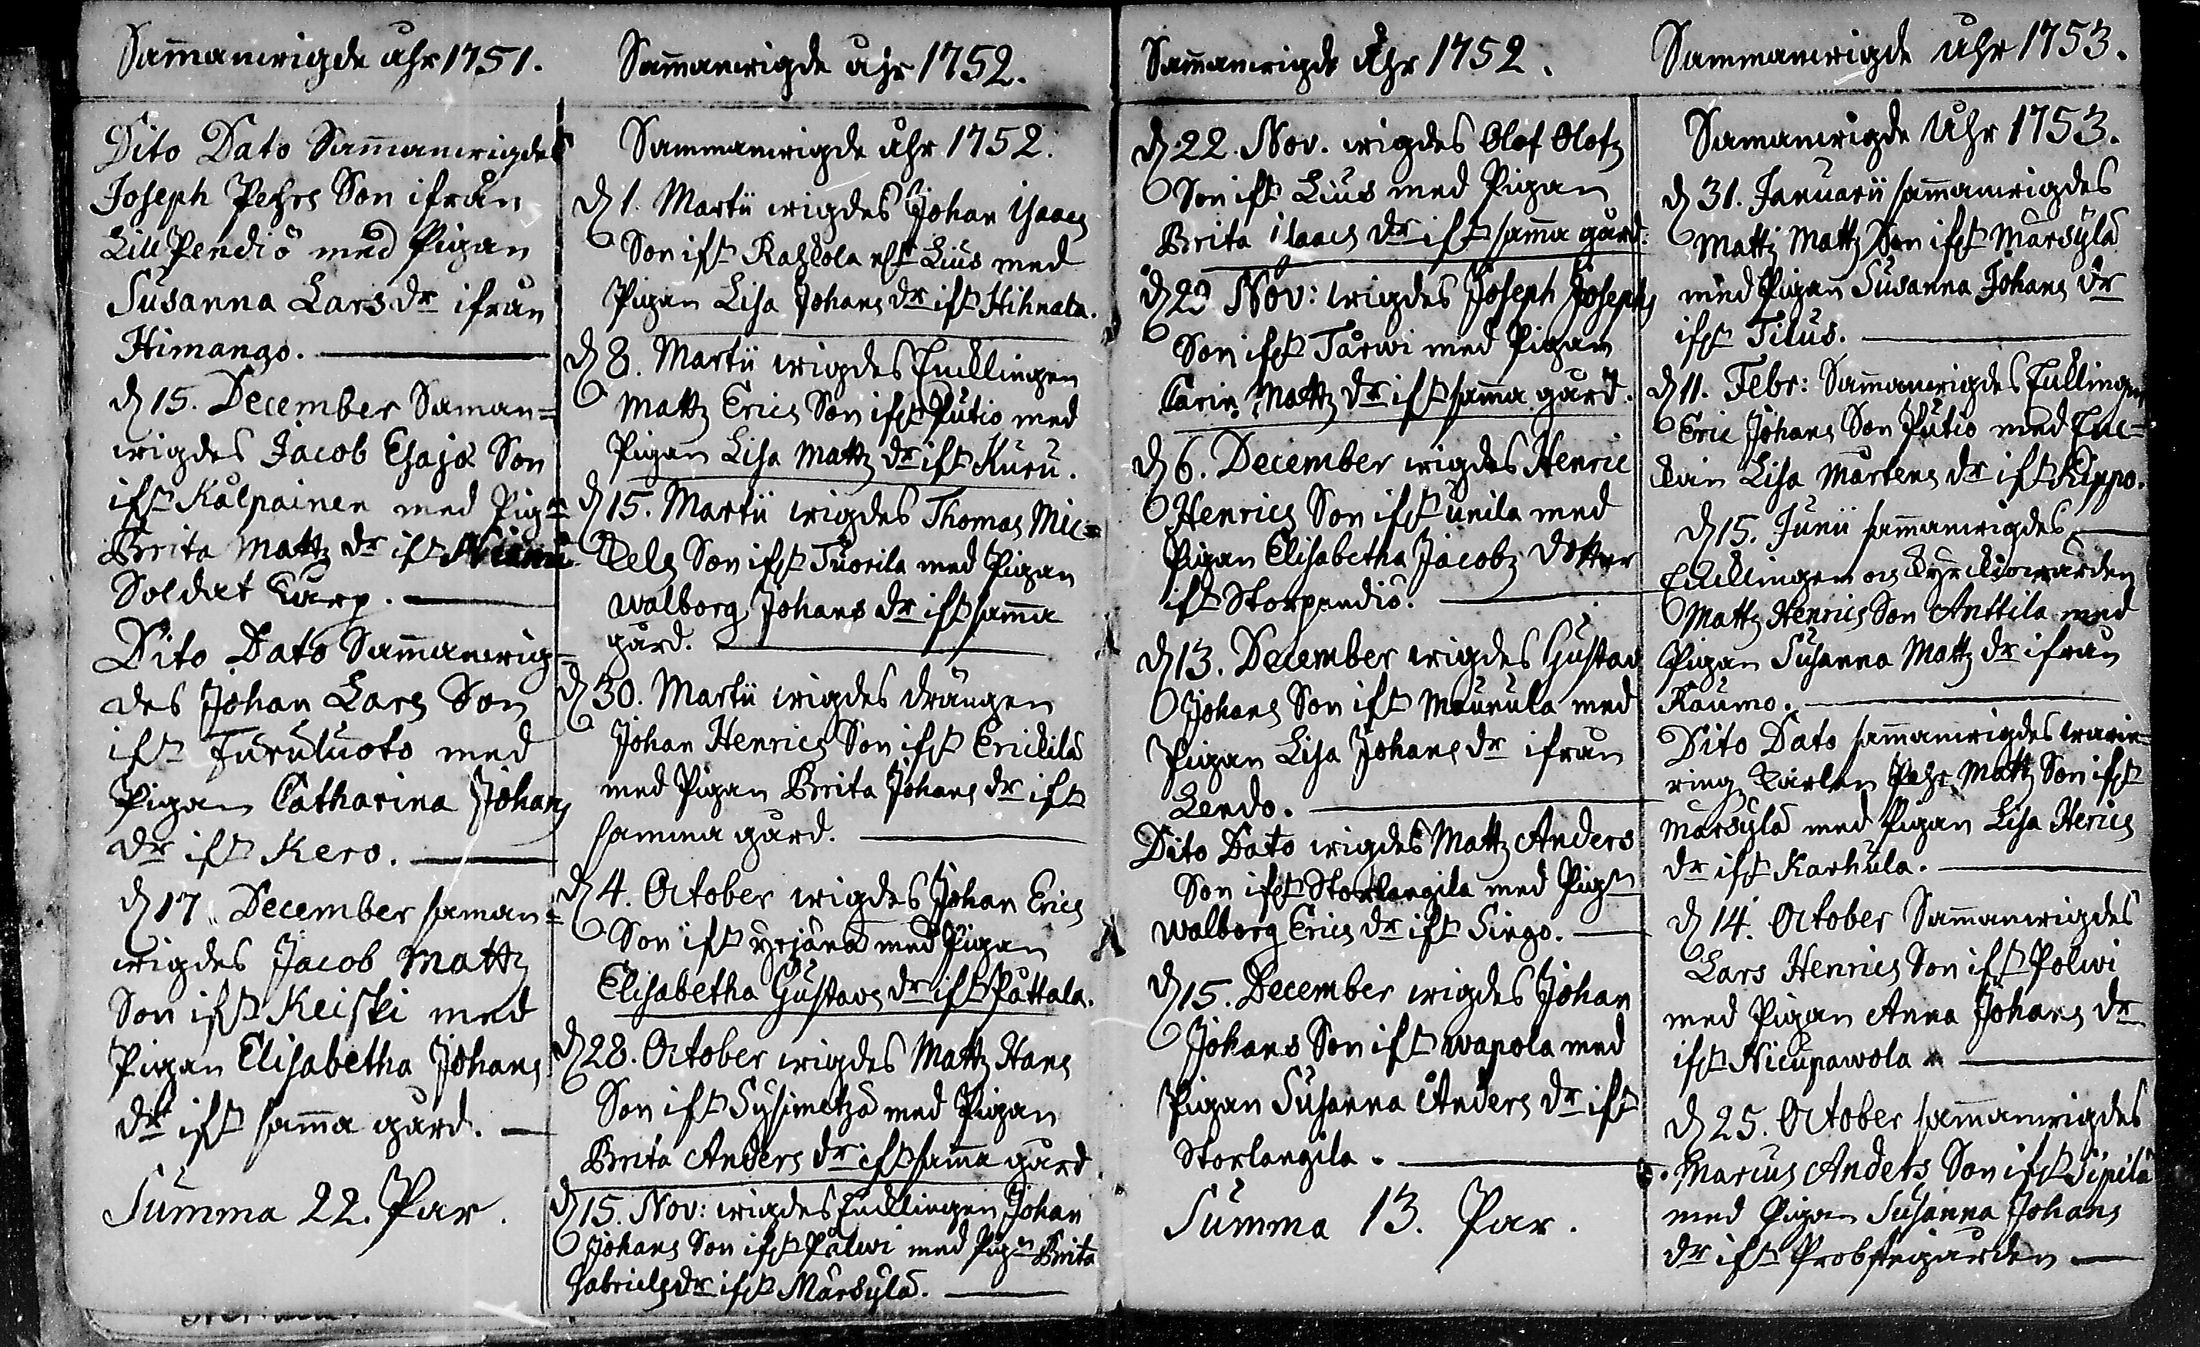 Sam̄anwigde åhr 1751.
Dito Dato Sam̄anwigdes
Joseph Pehrs Son ifrån
Lill Pendiö med Pigan
Susanna Lars dr ifrån
Himango.
D 15. December Saman=
wigdes Jacob Esajæ Son
ifr Kålpainen med Pign
Brita Mattz dr ifr
Soldat Karp.
Dito Dato Sam̄anwig=
des Johan Lars Son
ifr Furuluoto med
Pigan Catharina Johans
dr ifr Kero.
D 17. December saman=
wigdes Jacob Mattz
Son ifr Keiski med
Pigan Elisabetha Johans
dr ifr sam̄a gård.
Summa 22. Par.
Sam̄anwigde åhr 1752.
Sammanwigde åhr 1752.
D 1. Martii wigdes Johan Isaacs
Son ifr Kahlola Lius med
Pigan Lisa Johans dr ifr Hihnala.
D 8. Martii wigdes Enklingen
Mattz Erics Son ifr Putio med
Pigan Lisa Mattz dr ifr Kuru.
D 15. Martii wigdes Thomas Mic=
kels Son ifr Tuorila med Pigan
Walborg Johans dr ifr sam̄a
gård.
D 30. Martii wigdes drängen
Johan Henrics Son ifr Erickilä
med Pigan Brita Johans dr ifr
samma gård.
D 4. October wigdes Johan Erics
Son ifr Yrjänä med Pigan
Elisabetha Gustavs dr ifr Påttala.
D 28. October wigdes Mattz Hans
Son ifr Sysimetzä med Pigan
Brita Anders dr ifr sam̄a gård
D 15. Nov: wigdes Enklingen Johan
Johans Son ifr Pälwi med Pign Brita
Gabriels dr ifr Märsylä.
Sam̄anwigde åhr 1752.
D 22. Nov. wigdes Olof Olofz
Son ifr Lius med Pigan
Brita Isaacs dr ifr sam̄a gård.
D 29 Nov: wigdes Joseph Josephs
Son ifr Tårwi med Pigan
Carin Mattz dr ifr sam̄a gård.
D 6. December wigdes Henric
Henrics Son ifr Unila med
Pigan Elisabetha Jacobz dotter
ifr Storpendiö.
D 13. December wigdes Gustav
Johans Son ifr Maunula med
Pigan Lisa Johans dr ifrån
Lendo.
Dito Dato wigdes Mattz Anders
Son ifr Storlangila med Pign
Walborg Erics dr ifr Singo.
D 15. December wigdes Johan
Johans Son ifr Wapola med
Pigan Susanna Anders dr ifr
Storlangila.
Summa 13. Par.
Sammanwigde åhr 1753.
Samanwigde åhr 1753.
D 31. Januarii sam̄anwigdes
Mattz Mattz Son ifr Märsylä
med Pigan Susanna Johans dr
ifr Tilus.
D 11. Febr: Sam̄anwigdes Enklingen
Eric Johans Son Putio med En=
kan Lisa Mårtens dr ifr Kippo.
D 15. Junii sam̄anwigdes
Enklingen och Kyrckiowärden
Mattz Henrics Son Anttila med
Pigan Susanna Mattz dr ifrån
Raumo.
Dito Dato sam̄anwigdes
rings karlen Pehr Mattz Son ifr
Märsylä med Pigan Lisa Herics
dr ifr Karhula.
D 14. October Sam̄anwigdes
Lars Henrics Son ifr Pölwi
med Pigan Anna Johans dr
ifr Nicupawola
D 25. October sam̄anwigdes
Marcus Anders Son ifr Sipilä
med Pigan Susanna Johans
dr ifr Probstegården